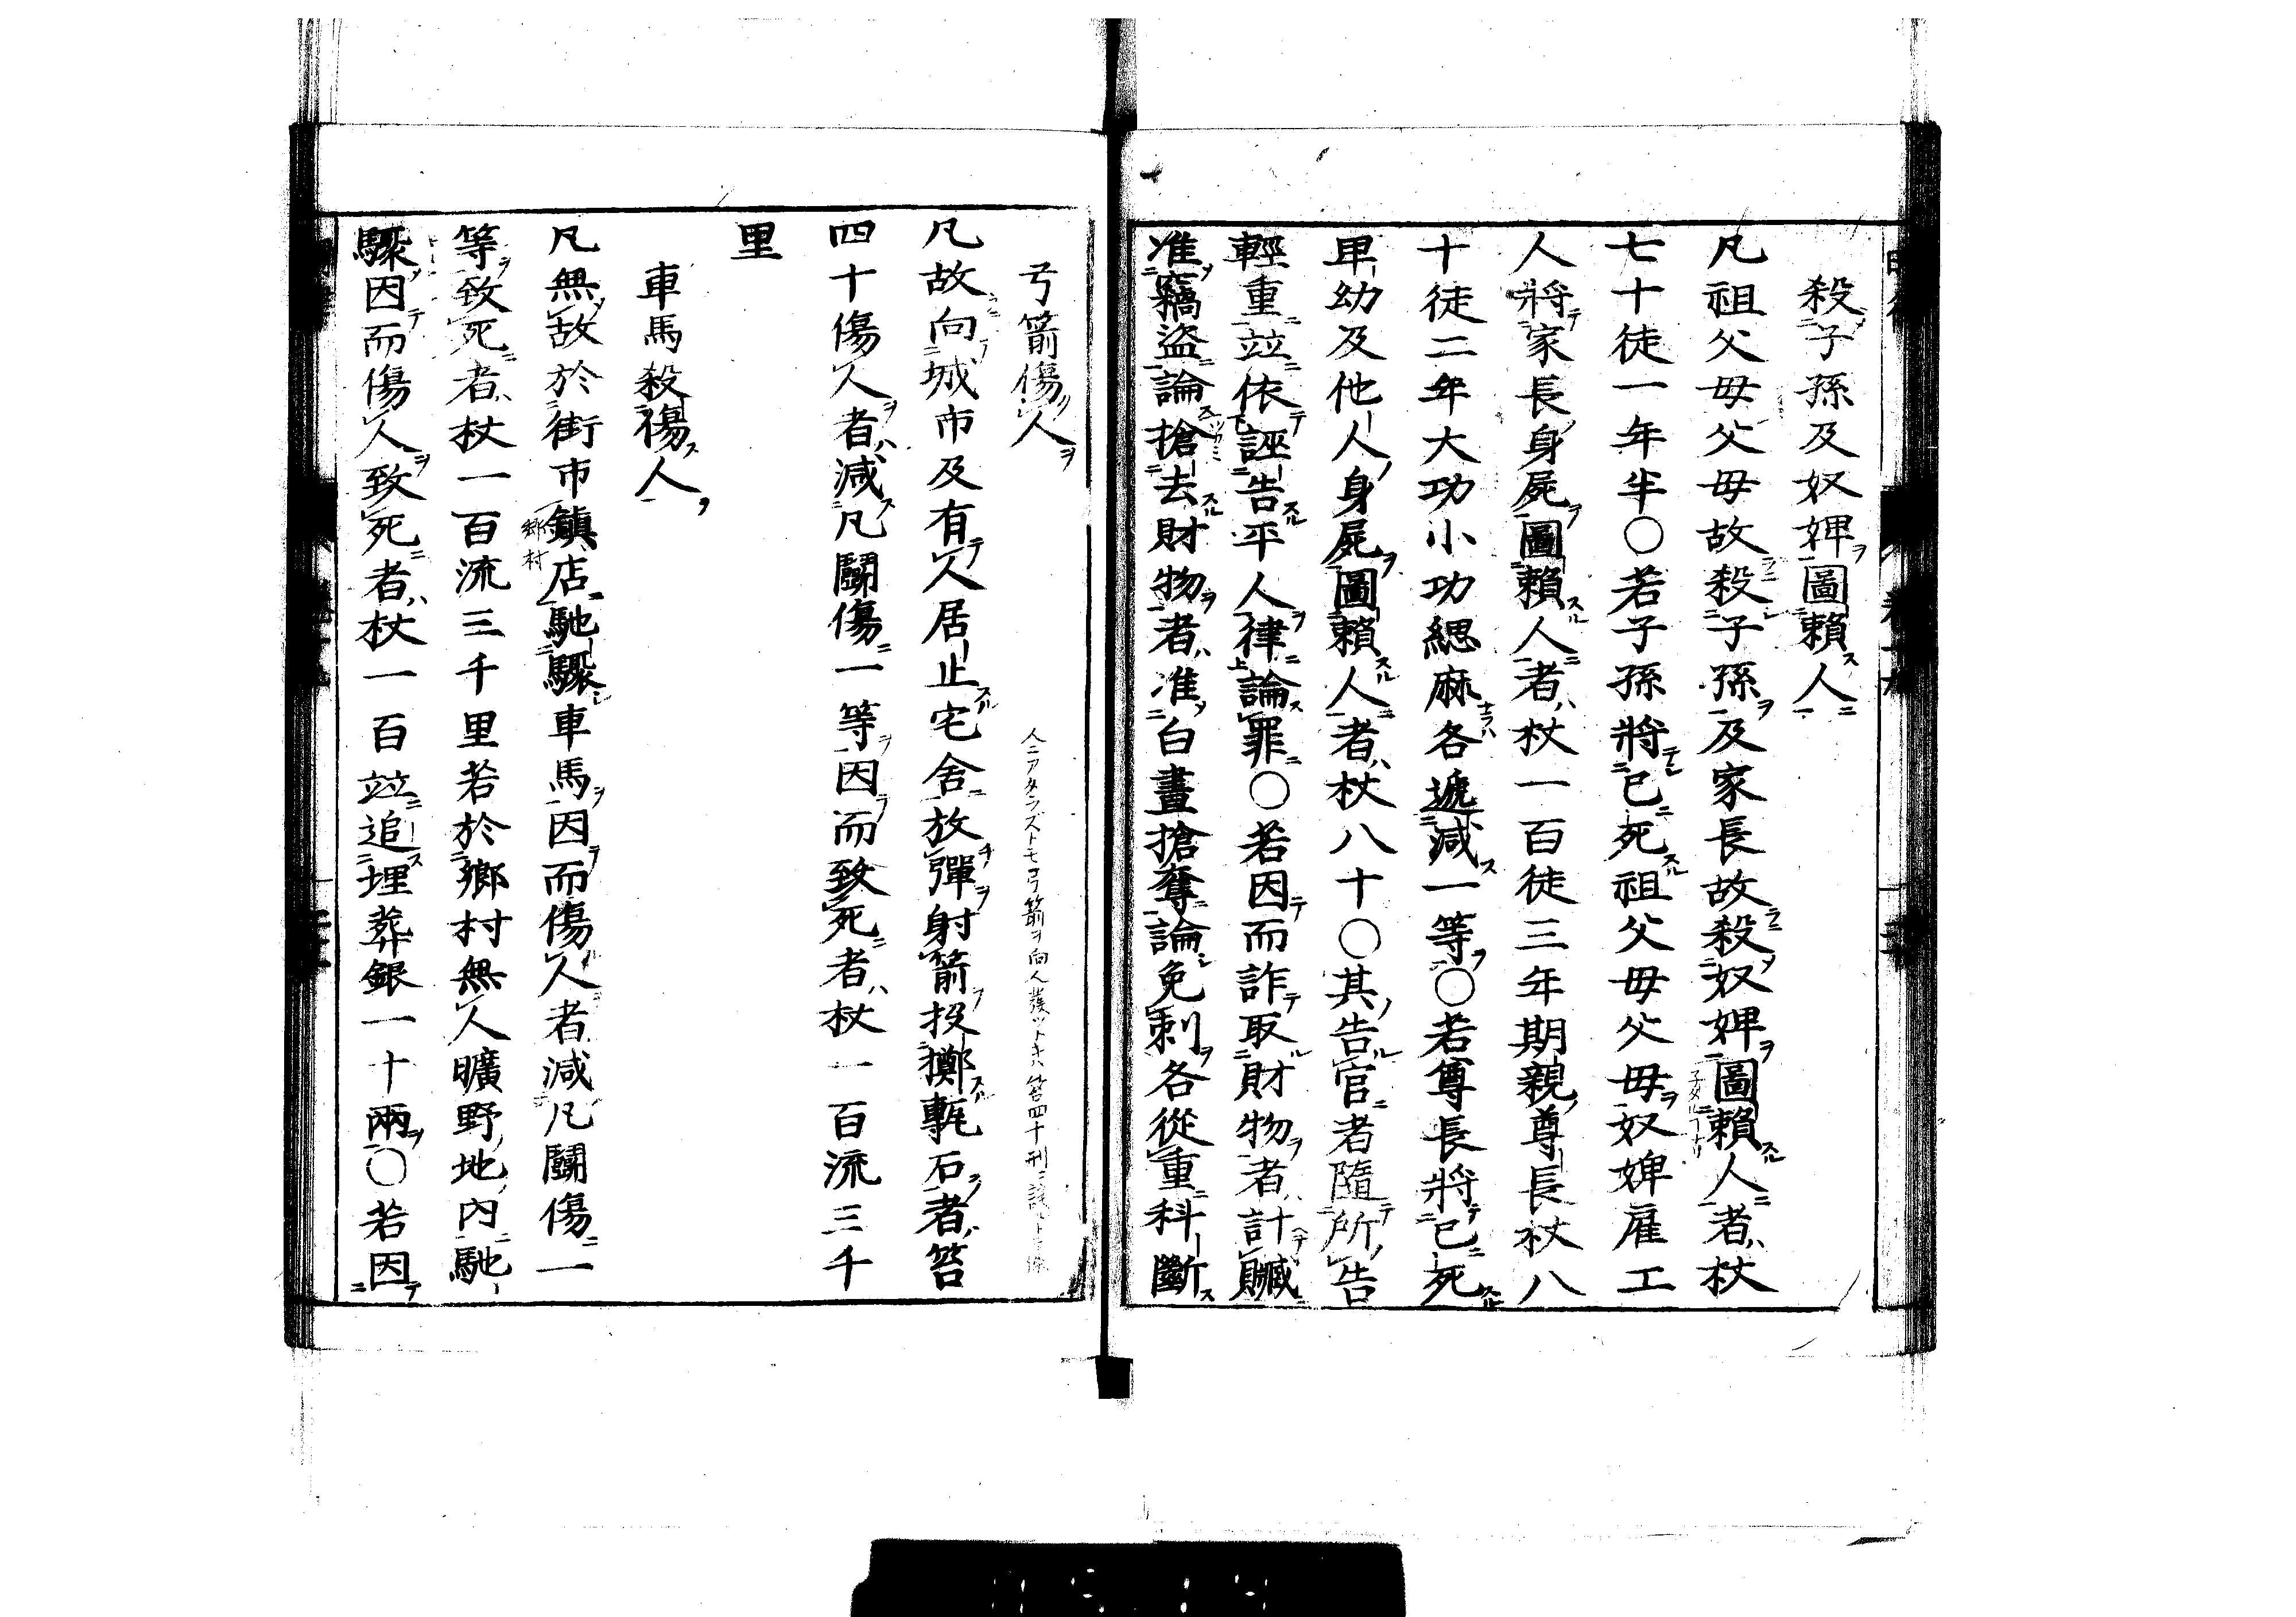 殺子孫及奴婢圖賴人
凡祖父母父母故殺子孫及家長故殺奴婢圖賴人者杖
七十徒一年半○若子孫將已死祖父母父母奴婢雇工
人將家長身屍圖賴人者杖一百徒三年期親尊長杖八
十徒二年大功小功緦麻各遞減一等○若尊長將已死
卑幼及他人身屍圖賴人者杖八十○其告官者隨所告
輕重竝依誣告平人律論罪○若因而詐取財物者計贓
准竊盗論搶去財物者准白晝搶奪論免刺各從重科斷
弓箭傷人
凡故向城市及有人居止宅舍放彈射箭投擲甎石者笞
四十傷人者減凡鬭傷一等因而致死者杖一百流三千
里
車馬殺傷人
凡無故於街市鎮店馳驟車馬因而傷人者減凡鬭傷一
鄉村
等致死者杖一百流三千里若於鄉村無人曠野地內馳
驟因而傷人致死者杖一百竝追埋葬銀一十兩○若因